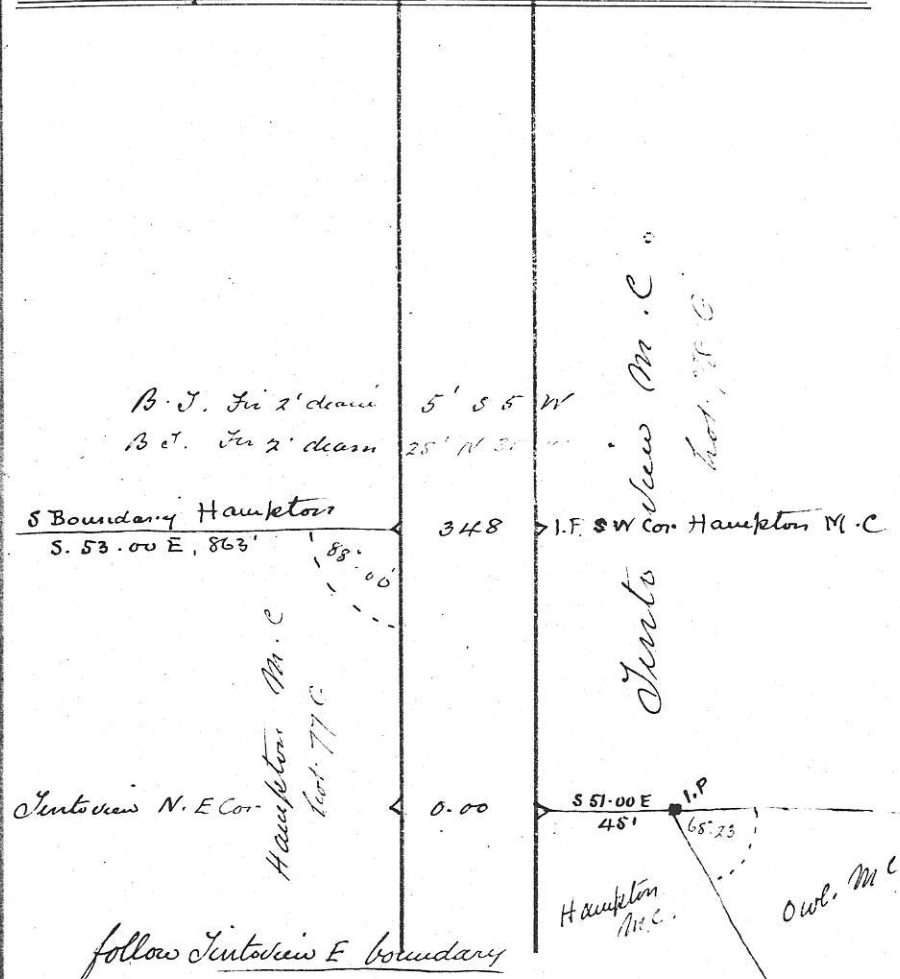 B.T. Fir 2' deam 5' S 5 W
B.T. Fir 2' deam 25' N
S Boundary Hampton
348
I.P. SW Cor Hampton M.C
S. 53.00 E, 863'
88.00'
Tintoview M.C.
Lot. 78 G
Hampton M.C
Lot 77 G
Tintoview N.E Cor
0.00
S 51.00 E
45'
I.P
65.23
Hampton
M.C.
Owl. MC
follow Tintoview E boundary